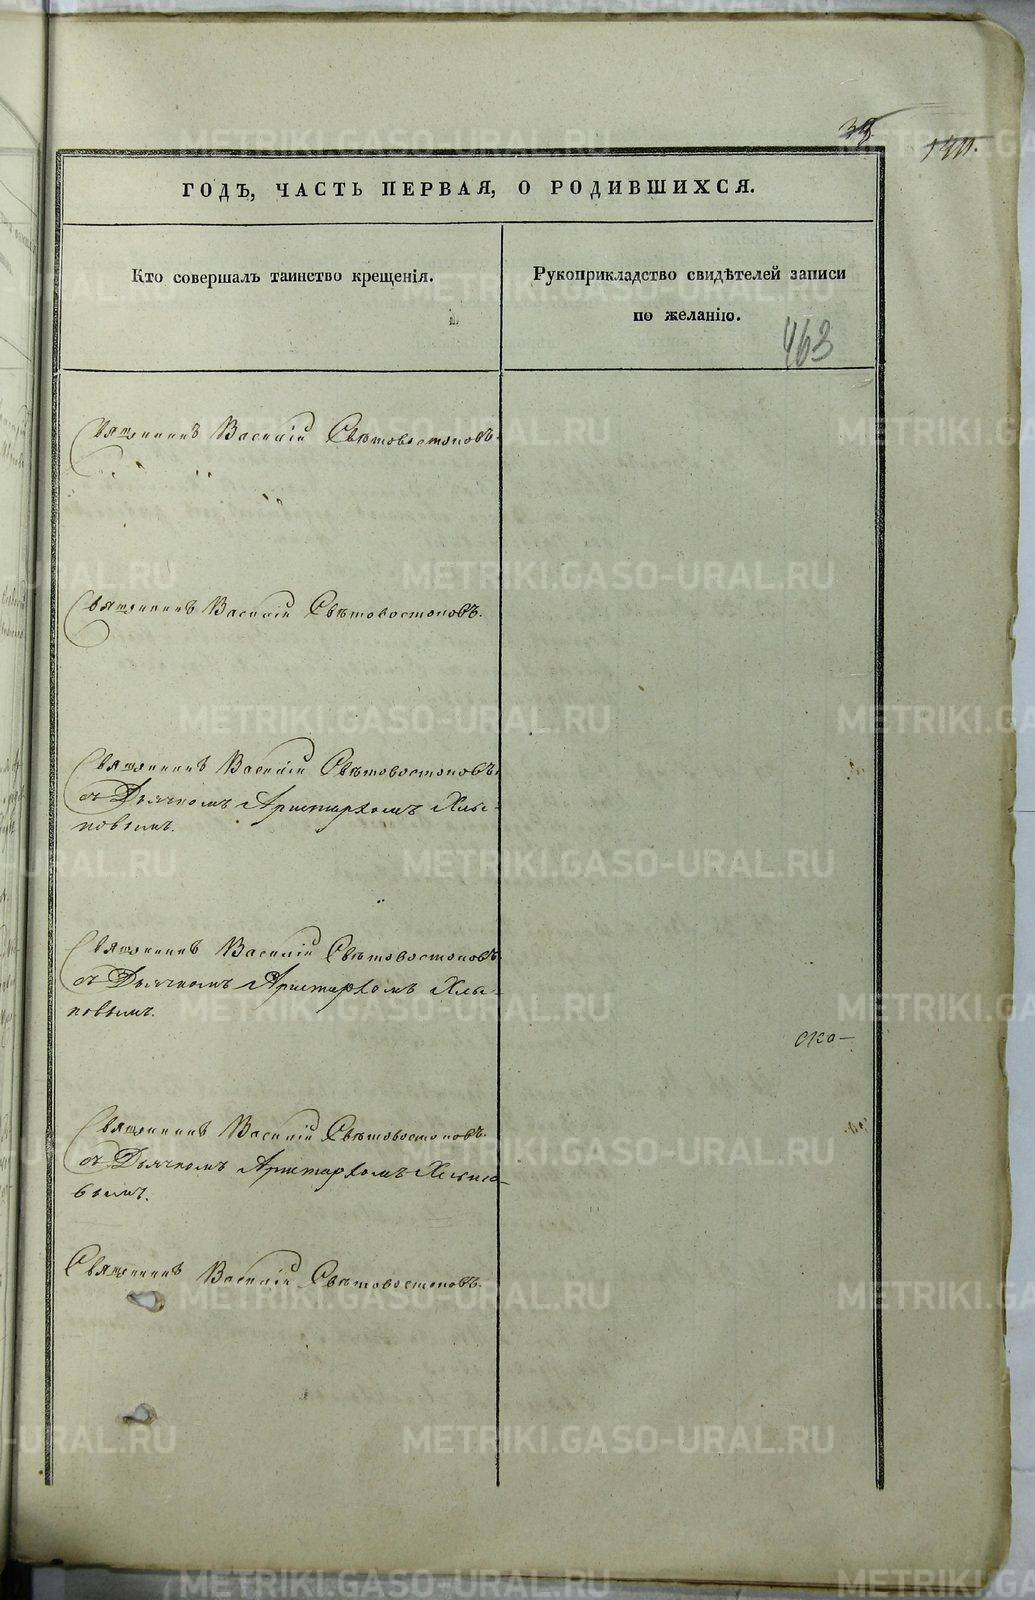 39.
130.
ГОДЪ, ЧАСТЬ ПЕРВАЯ, О РОДИВШИХСЯ.
Кто совершалъ таинство крещенія.
Рукоприкладство свидѣтелей записи
по желанію.
463
Священникъ Василій Свѣтовостоковъ.
Священникъ Василій Свѣтовостоковъ.
Священникъ Василій Свѣтовостоковъ
съ Дьячкомъ Аристархомъ Хлы-
новымъ.
Священникъ Василій Свѣтовостоковъ
съ Дьячкомъ Аристархомъ Хлы-
новымъ.
ско-
Священникъ Василій Свѣтовостоковъ
съ Дьячкомъ Аристархомъ Хлыно-
вымъ.
Священникъ Василій Свѣтовостоковъ.
METRIKI.GASO-URAL.RU